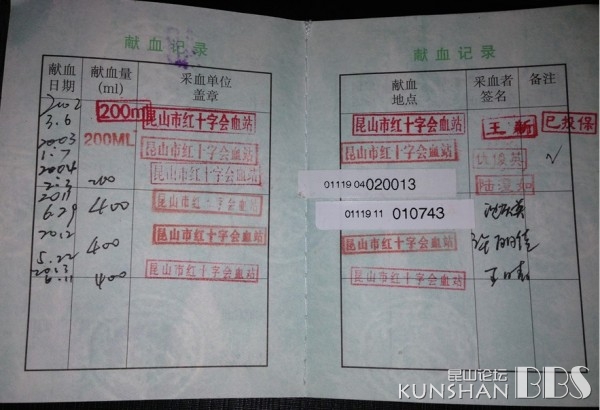 献血记录
献血日期 献血量(ml) 采血单位盖章
2002 3.6 200ml 昆山市红十字会血站
2003 1.7 200ML 昆山市红十字会血站
2004 2.3 200 昆山市红十字会血站
2011 6.29 400 昆山市红十字会血站
2012 5.22 400 昆山市红十字会血站
2013 6.11 400 昆山市红十字会血站
献血记录
献血地点 采血者签名 备注
昆山市红十字会血站 王新 已投保
昆山市红十字会血站 √
01119 04 020013 陆
01119 11 010743
昆山市红十字会血站
昆山市红十字会血站 王
昆山论坛
KUNSHAN BBS